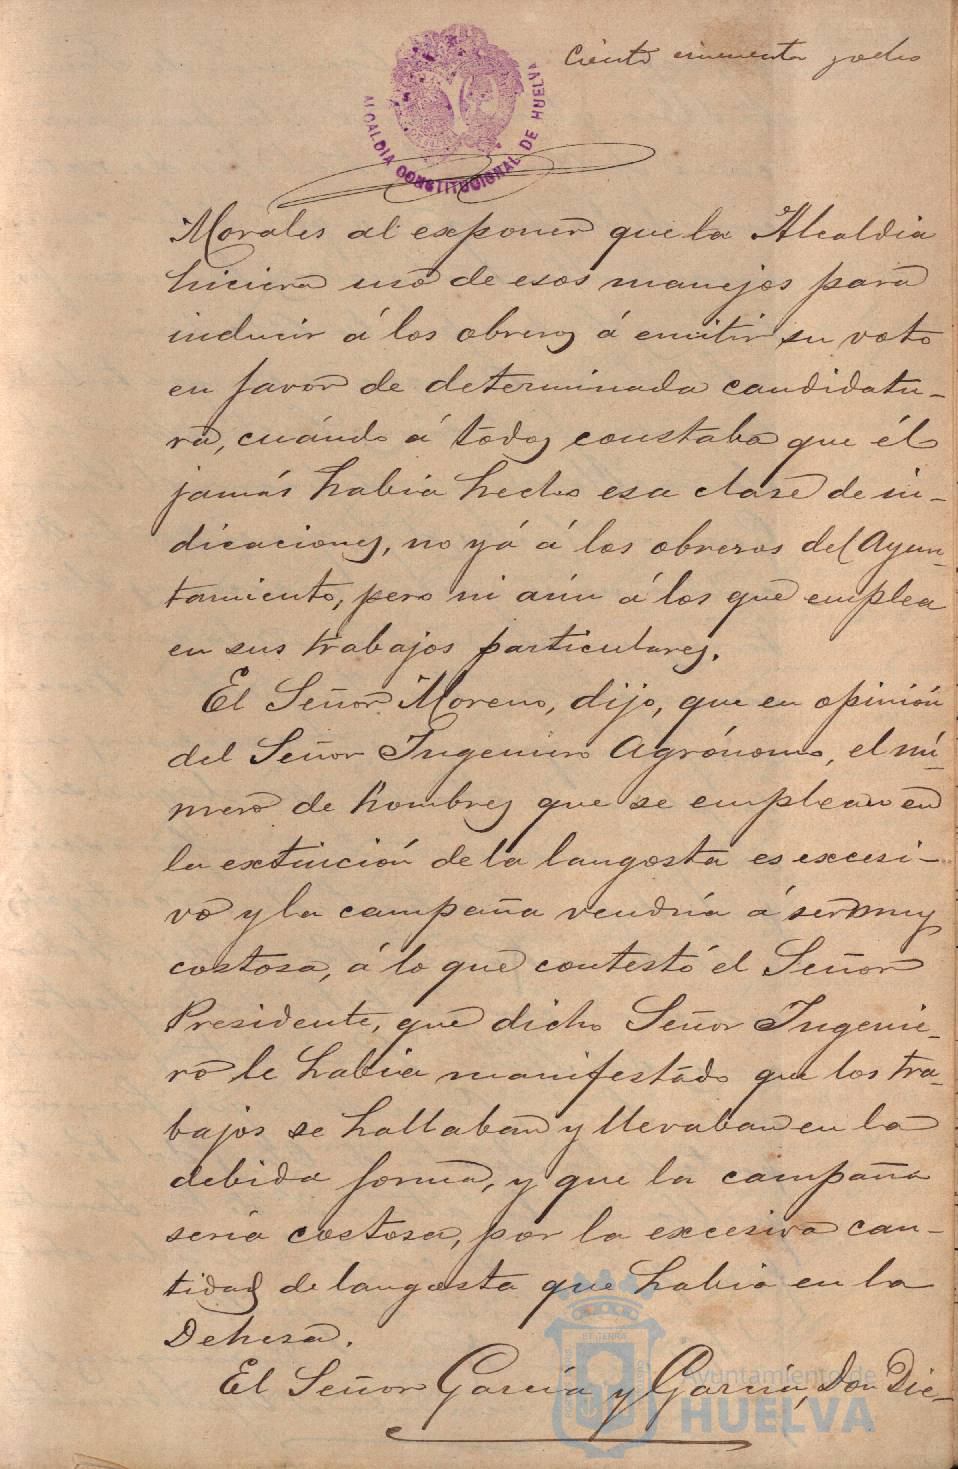 Ciento cincuenta y ocho
ALCALDIA CONSTITUCIONAL DE HUELVA
Morales al exponer que la Alcaldia
hiciera uso de esos manejos para
inducir á los obreros á emitir su voto
en favor de determinada candidatu-
ra, cuándo á todos constaba que él
jamás habia hecho esa clase de in-
dicaciones, no yá á los obreros del Ayun-
tamiento, pero ni aún á los que emplea
en sus trabajos particulares.
El Señor Moreno, dijo, que en opinión
del Señor Ingeniero Agrónomo, el nú-
mero de hombres que se emplean en
la extinción de la langosta es excesi-
vo y la campaña vendría á ser muy
costosa, á lo que contestó el Señor
Presidente, que dicho Señor Ingenie-
ro le habia manifestado que los tra-
bajos se hallaban y llevaban en la
debida forma, y que la campaña
seria costosa, por la excesiva can-
tidad de langosta que habia en la
Dehesa.
El Señor García y García, Don Die-
Ayuntamiento de
HUELVA